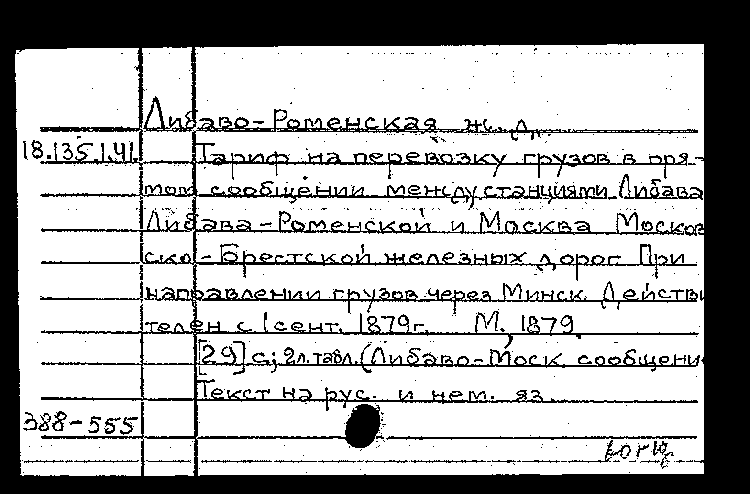 Либаво-Роменская ж. д.
18.135.1.41. Тариф на перевозку грузов в пря-
мом сообщении между станциями Либава
Либава-Роменской и Москва Москов
ско-Брестской железных дорог При
направлении грузов через Минск. Действи
телен с 1 сент. 1879г. М., 1879.
[29] с; 2л. табл. (Либаво-Моск. сообщени
Текст на рус. и нем. яз.
388-555